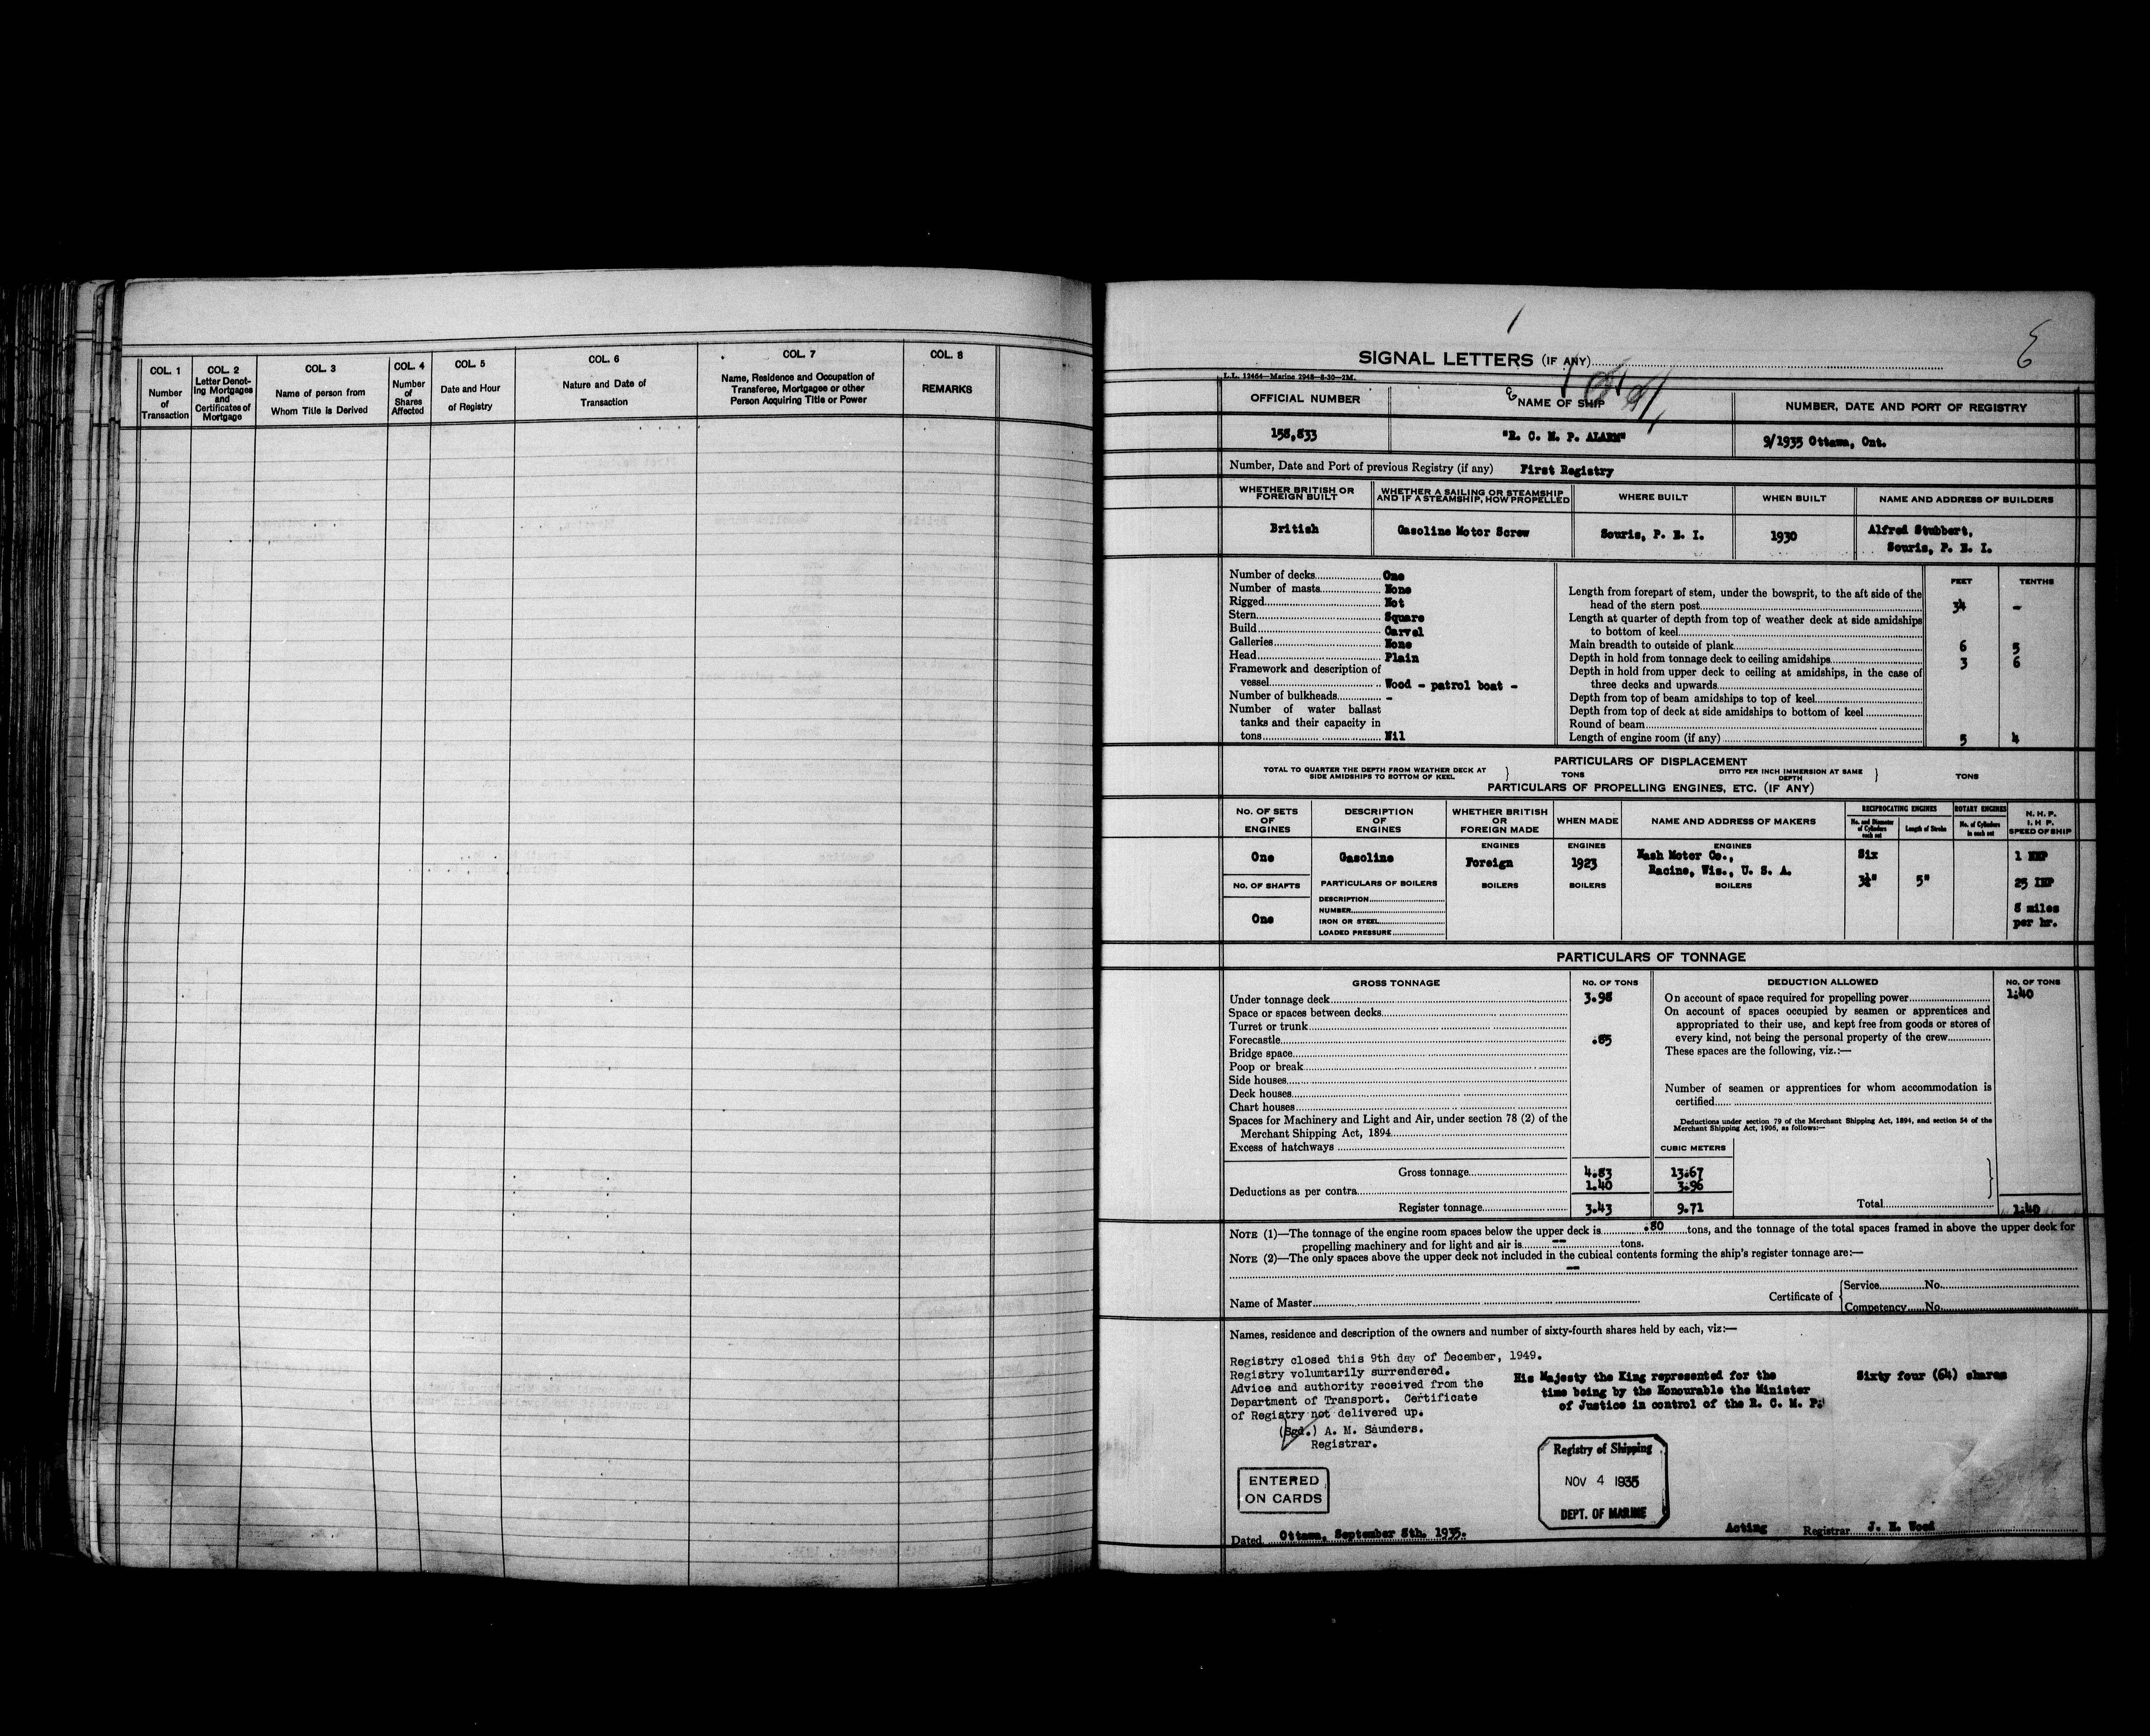 COL. 1
Number
of
Transaction
COL. 2
Letter Denot-
ing Mortgages
and
Certificates of
Mortgage
COL. 3
Name of person from
Whom Title is Derived
COL. 4
Number
of
Shares
Affected
COL. 5
Date and Hour
of Registry
COL. 6
Nature and Date of
Transaction
COL. 7
Name, Residence and Occupation of
Transferee, Mortgagee or other
Person Acquiring Title or Power
COL. 8
REMARKS
SIGNAL LETTERS (IF ANY)
L.L. 12464—Marine 2948—8-30—2M.
OFFICIAL NUMBER NAME OF SHIP NUMBER, DATE AND PORT OF REGISTRY
158,833 "R. C. M. P. ALARM" 9/1935 Ottawa, Ont.
Number, Date and Port of previous Registry (if any) First Registry
WHETHER BRITISH OR
FOREIGN BUILT
WHETHER A SAILING OR STEAMSHIP
AND IF A STEAMSHIP, HOW PROPELLED
WHERE BUILT WHEN BUILT NAME AND ADDRESS OF BUILDERS
British Gasoline Motor Screw Souris, P. E. I. 1930 Alfred Stubbert,
Souris, P. E. I.
Number of decks One
Number of masts None
Rigged Not
Stern Square
Build Carvel
Galleries None
Head Plain
Framework and description of
vessel Wood - patrol boat -
Number of bulkheads -
Number of water ballast
tanks and their capacity in
tons Nil
FEET TENTHS
Length from forepart of stem, under the bowsprit, to the aft side of the
head of the stern post 34 -
Length at quarter of depth from top of weather deck at side amidships
to bottom of keel
Main breadth to outside of plank 6 5
Depth in hold from tonnage deck to ceiling amidships 3 6
Depth in hold from upper deck to ceiling at amidships, in the case of
three decks and upwards
Depth from top of beam amidships to top of keel
Depth from top of deck at side amidships to bottom of keel
Round of beam
Length of engine room (if any) 5 4
PARTICULARS OF DISPLACEMENT
TOTAL TO QUARTER THE DEPTH FROM WEATHER DECK AT
SIDE AMIDSHIPS TO BOTTOM OF KEEL } TONS
DITTO PER INCH IMMERSION AT SAME
DEPTH } TONS
PARTICULARS OF PROPELLING ENGINES, ETC. (IF ANY)
NO. OF SETS
OF
ENGINES
DESCRIPTION
OF
ENGINES
WHETHER BRITISH
OR
FOREIGN MADE
WHEN MADE
NAME AND ADDRESS OF MAKERS
RECIPROCATING ENGINES
No. and Diameter
of Cylinders
each set
Length of Stroke
ROTARY ENGINES
No. of Cylinders
in each set
N. H. P.
I. H. P.
SPEED OF SHIP
ENGINES ENGINES ENGINES
One Gasoline Foreign 1923 Nash Motor Co., Six 1 NHP
Racine, Wis., U. S. A.
NO. OF SHAFTS PARTICULARS OF BOILERS BOILERS BOILERS BOILERS 3¼" 5" 25 IHP
DESCRIPTION
NUMBER
IRON OR STEEL
LOADED PRESSURE
One
8 miles
per hr.
PARTICULARS OF TONNAGE
GROSS TONNAGE NO. OF TONS
Under tonnage deck 3.98
Space or spaces between decks
Turret or trunk
Forecastle .85
Bridge space
Poop or break
Side houses
Deck houses
Chart houses
Spaces for Machinery and Light and Air, under section 78 (2) of the
Merchant Shipping Act, 1894
Excess of hatchways
CUBIC METERS
Gross tonnage 4.83 13.67
Deductions as per contra 1.40 3.96
Register tonnage 3.43 9.71
DEDUCTION ALLOWED NO. OF TONS
On account of space required for propelling power 1.40
On account of spaces occupied by seamen or apprentices and
appropriated to their use, and kept free from goods or stores of
every kind, not being the personal property of the crew
These spaces are the following, viz.:—
Number of seamen or apprentices for whom accommodation is
certified
Deductions under section 79 of the Merchant Shipping Act, 1894, and section 54 of the
Merchant Shipping Act, 1906, as follows:—
Total 1.40
NOTE (1)—The tonnage of the engine room spaces below the upper deck is .80 tons, and the tonnage of the total spaces framed in above the upper deck for
propelling machinery and for light and air is -- tons.
NOTE (2)—The only spaces above the upper deck not included in the cubical contents forming the ship's register tonnage are:—
--
Name of Master
Certificate of { Service No.
Competency No.
Names, residence and description of the owners and number of sixty-fourth shares held by each, viz:—
Registry closed this 9th day of December, 1949.
Registry volumtarily surrendered.
Advice and authority received from the
Department of Transport. Certificate
of Registry not delivered up.
(Sgd.) A. M. Saunders.
Registrar.
His Majesty the King represented for the
time being by the Honourable the Minister
of Justice in control of the R. C. M. P.
Sixty four (64) shares
ENTERED
ON CARDS
Registry of Shipping
NOV 4 1935
DEPT. OF MARINE
Dated Ottawa, September 8th. 1935.
Acting Registrar J. H. Wood